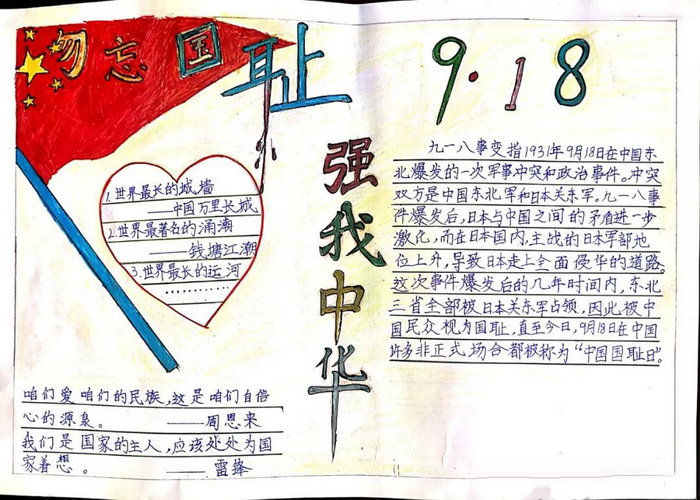 勿忘国耻
强我中华
9·18
1.世界最长的城墙
——中国万里长城
2.世界最著名的涌潮
——钱塘江潮
3.世界最长的运河
…………
咱们爱咱们的民族,这是咱们自信
心的源泉。——周恩来
我们是国家的主人,应该处处为国
家着想。——雷锋
九一八事变指1931年9月18日在中国东
北爆发的一次军事冲突和政治事件。冲突
双方是中国东北军和日本关东军。九一八事
件爆发后,日本与中国之间的矛盾进一步
激化,而在日本国内,主战的日本军部地
位上升,导致日本走上全面侵华的道路。
这次事件爆发后的几年时间内,东北
三省全部被日本关东军占领,因此被中
国民众视为国耻,直至今日,9月18日在中国
许多非正式场合都被称为“中国国耻日”。